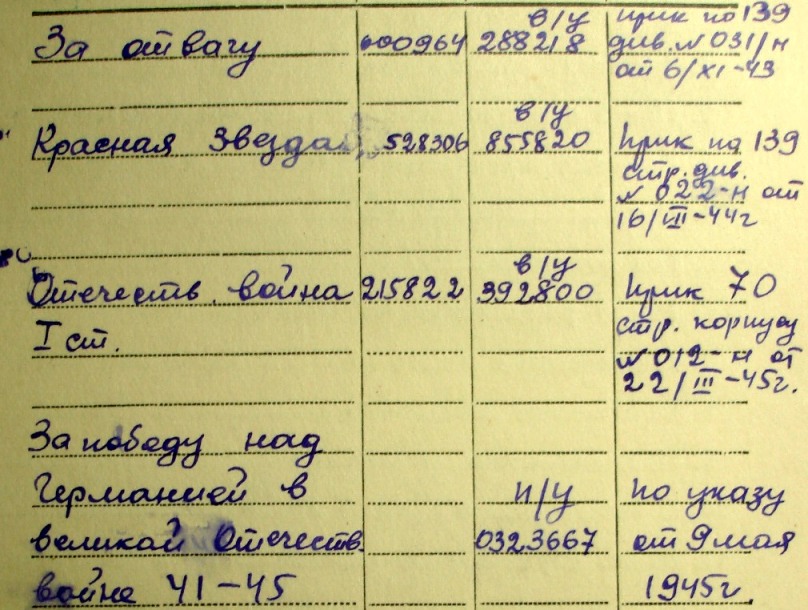 в/у прик по 139
За отвагу 600964 288218 див. №031/н
от 6/XI-43
в/у
Красная Звезда 528306 855820 прик по 139
стр. див.
№022-н от
16/III-44г
в/у
Отечеств. война 215822 392800 прик 70
I ст. стр. корпусу
№012-н от
22/III-45г.
За победу над
Германией в н/у по указу
великой Отечеств. 0323667 от 9 мая
войне 41-45 1945г.